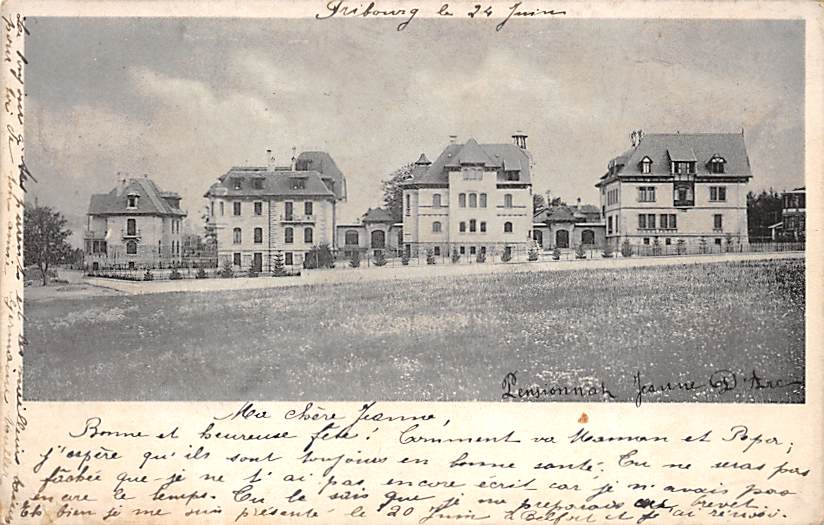 Fribourg le 24 Juin
Pensionnat Jeanne D'Arc
Ma chère Jeanne,
Bonne et heureuse fête! Comment va Maman et Papa;
j'espère qu'ils sont toujours en bonne santé. Tu ne seras pas
fâchée que je ne t'ai pas encore écrit car je n'avais pas
encore le temps. Tu le sais que je me préparais au brevet.
Eh bien je me suis présentée le 20 Juin à Belfort et j'ai réussi.
pour toi de ton amie Germaine